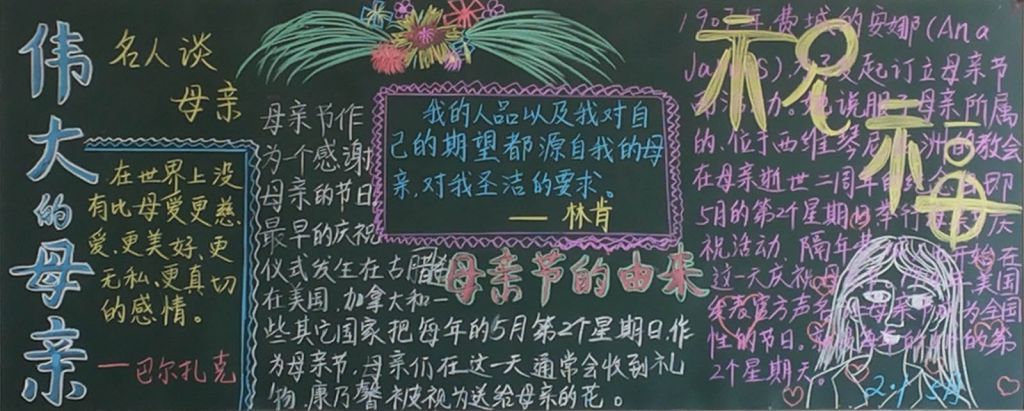 伟大的母亲
名人谈
母亲
在世界上没
有比母爱更慈
爱、更美好、更
无私、更真切
的感情。
——巴尔扎克
母亲节作
为一个感谢
母亲的节日,
最早的庆祝
仪式发生在古
在美国、加拿大和一
些其它国家把每年的5月第2个星期日作
为母亲节,母亲们在这一天通常会收到礼
物,康乃馨被视为送给母亲的花。
我的人品以及我对自
己的期望都源自我的母
亲,对我圣洁的要求。
——林肯
母亲节的由来
祝福
年费城的安娜(Ana
起订立母亲节
她说服 母亲所属
的、位于西维 教会
在母亲逝世二周年 即
5月的第2个星期日举行
祝活动,隔年 在
这一天庆祝母 美国
发表官方声 为全国
性的节日。 的第
2个星期天。